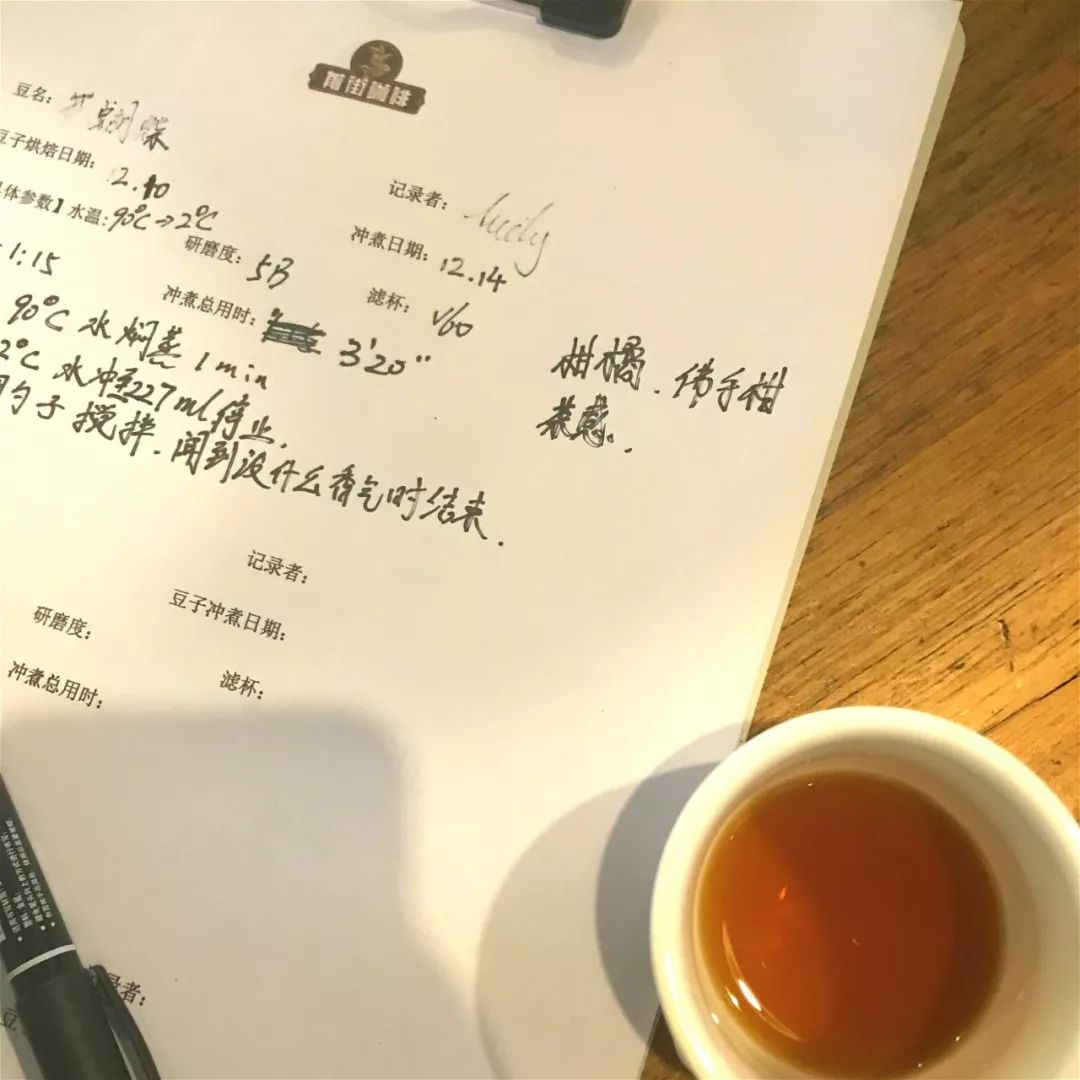 前街咖啡
豆名: 蝴蝶
豆子烘焙日期: 12.10
记录者:
体参数】水温: 90℃→2℃
冲煮日期: 12.14
1:15
研磨度: 5B
滤杯: V60
冲煮总用时: 3'20"
90℃水焖蒸1min
2℃水冲至227ml停止.
勺子搅拌.闻到没什么香气时结束.
柑橘.佛手柑
茶感.
记录者:
豆子冲煮日期:
研磨度:
滤杯:
冲煮总用时:
录者:
豆